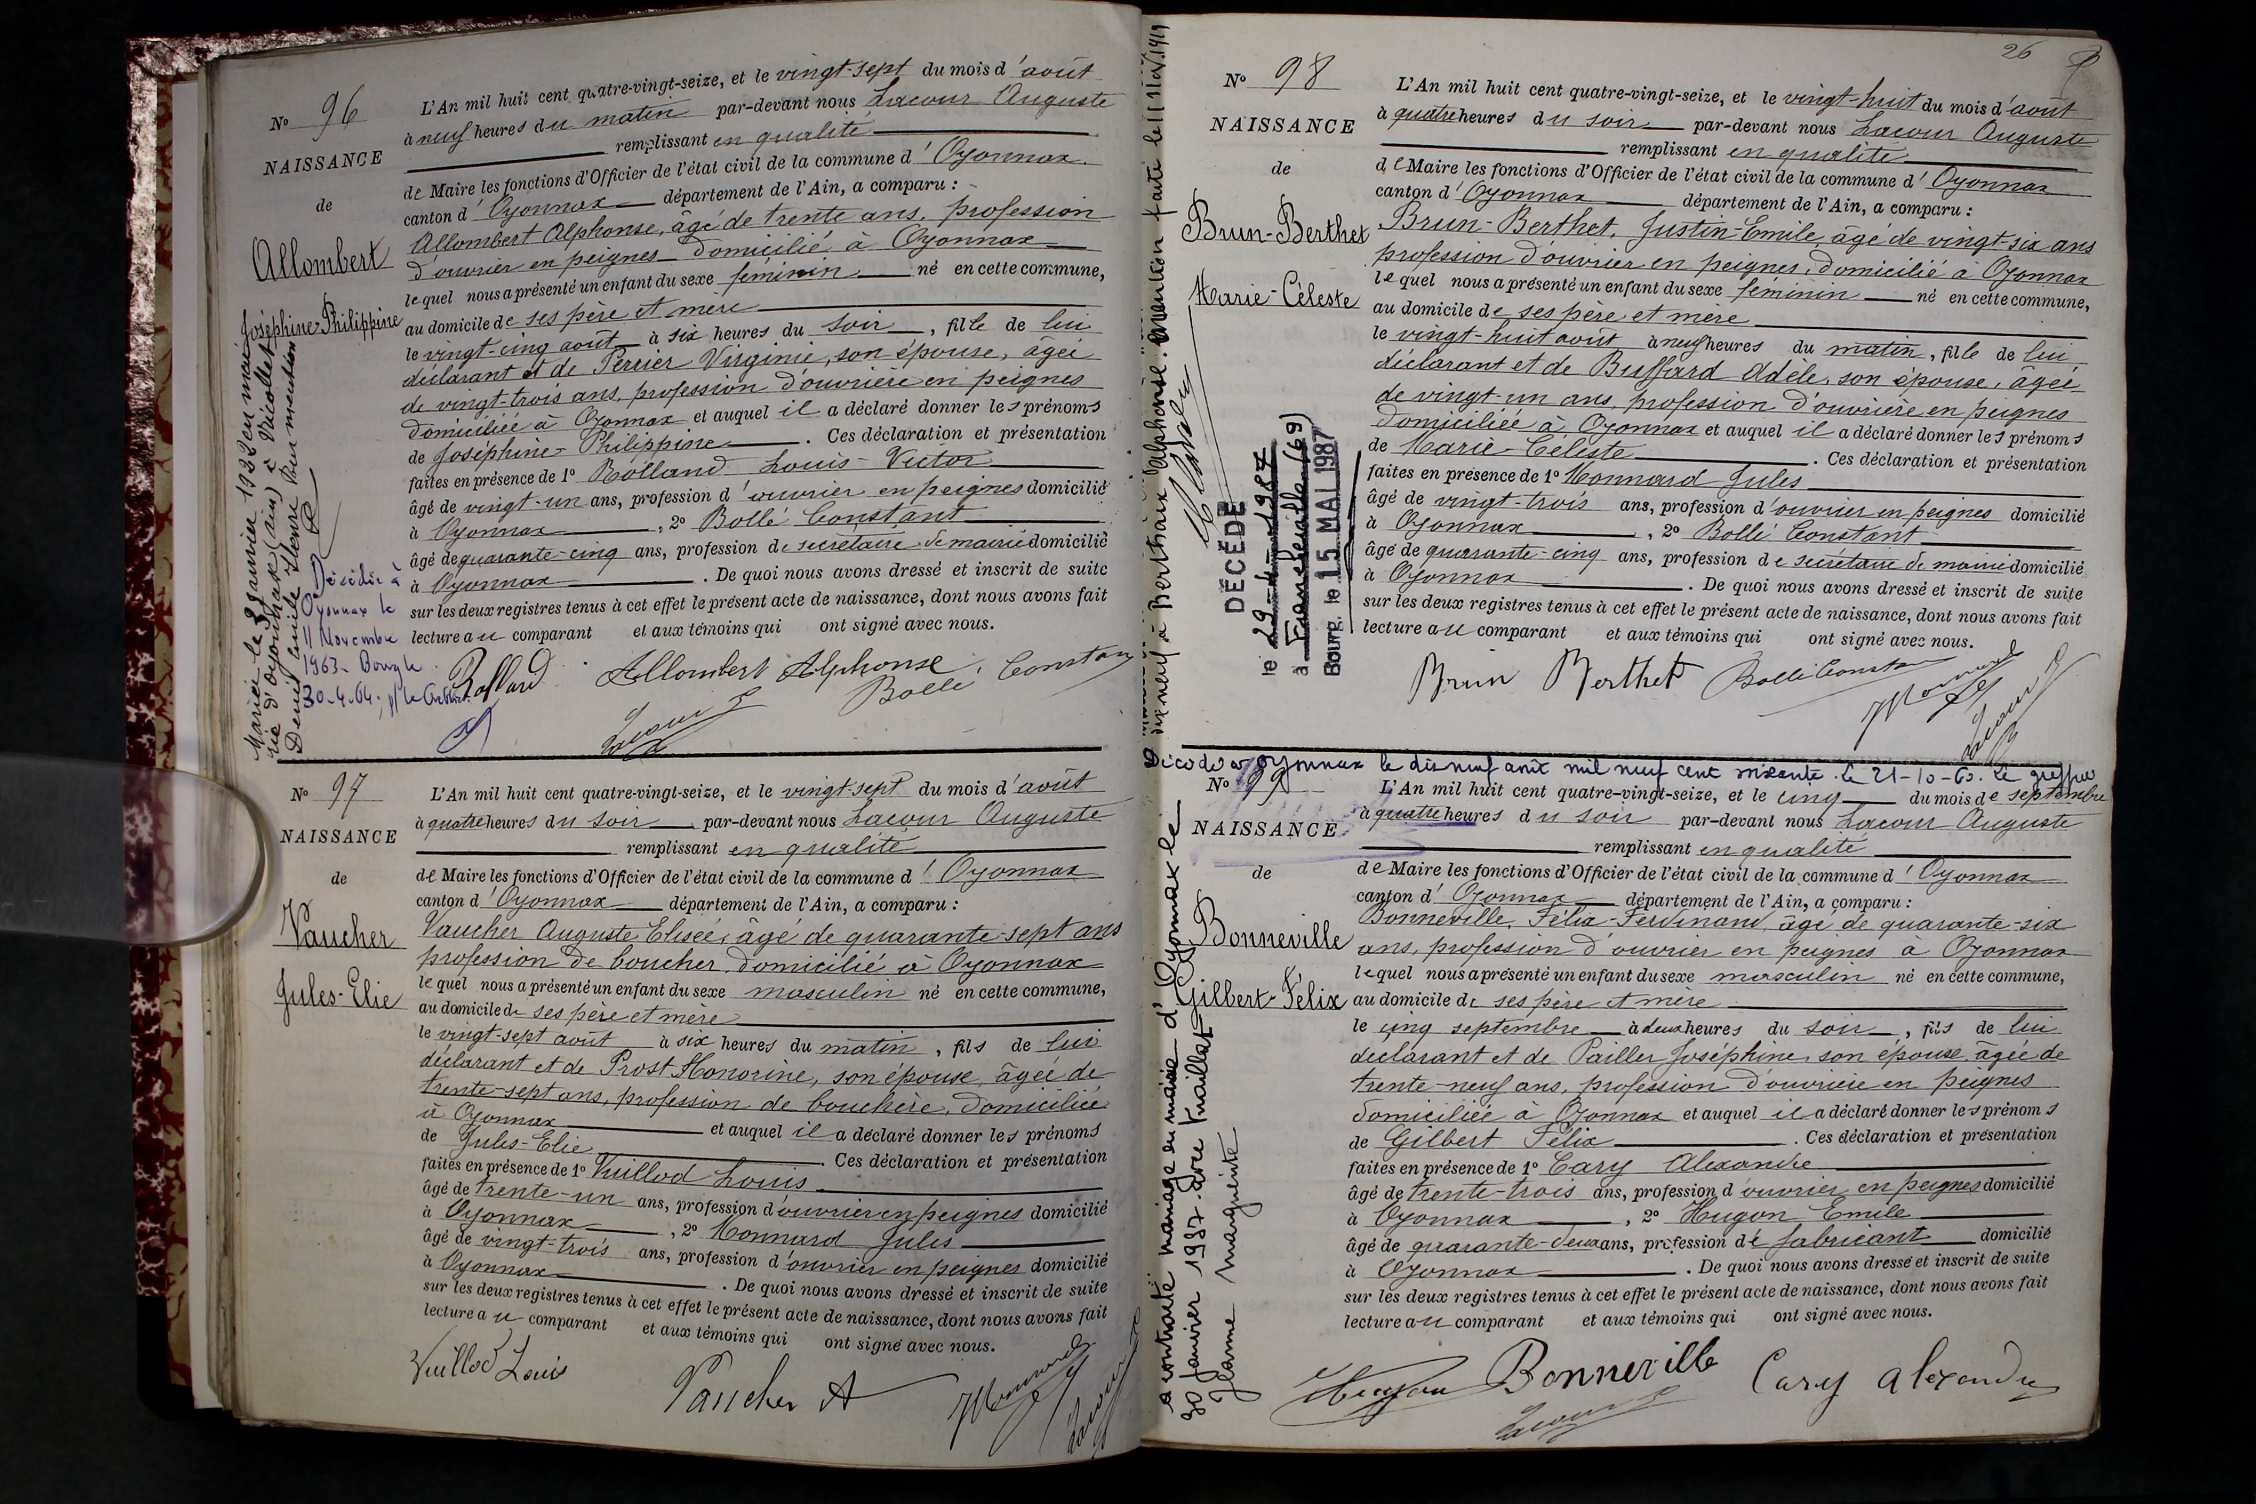 Nº 96
NAISSANCE
de
Allombert
Joséphine-Philippine
L'An mil huit cent quatre-vingt-seize, et le vingt-sept du mois d'août
à neuf heures du matin par-devant nous Lacour Auguste
remplissant en qualité
de Maire les fonctions d'Officier de l'état civil de la commune d'Oyonnax
canton d'Oyonnax département de l'Ain, a comparu :
Allombert Alphonse, âgé de trente ans, profession
d'ouvrier en peignes domicilié à Oyonnax
lequel nous a présenté un enfant du sexe féminin né en cette commune,
au domicile de ses père et mère
le vingt-cinq août à six heures du soir, fille de lui
déclarant et de Perrier Virginie, son épouse, âgée
de vingt-trois ans, profession d'ouvrière en peignes
domiciliée à Oyonnax et auquel il a déclaré donner les prénoms
de Joséphine-Philippine. Ces déclaration et présentation
faites en présence de 1º Rolland Louis-Victor
âgé de vingt-un ans, profession d'ouvrier en peignes domicilié
à Oyonnax, 2º Bollé Constant
âgé de quarante-cinq ans, profession de secrétaire de mairie domicilié
à Oyonnax. De quoi nous avons dressé et inscrit de suite
sur les deux registres tenus à cet effet le présent acte de naissance, dont nous avons fait
lecture au comparant et aux témoins qui ont signé avec nous.
Rolland Allombert Alphonse Bollé Constant
Lacour
Décédée à
Oyonnax le
11 Novembre
1963. Bourg le
30-4-64
Nº 97
NAISSANCE
de
Vaucher
Jules-Elie
L'An mil huit cent quatre-vingt-seize, et le vingt-sept du mois d'août
à quatre heures du soir par-devant nous Lacour Auguste
remplissant en qualité
de Maire les fonctions d'Officier de l'état civil de la commune d'Oyonnax
canton d'Oyonnax département de l'Ain, a comparu :
Vaucher Auguste Elisée, âgé de quarante-sept ans
profession de boucher domicilié à Oyonnax
lequel nous a présenté un enfant du sexe masculin né en cette commune,
au domicile de ses père et mère
le vingt-sept août à six heures du matin, fils de lui
déclarant et de Prost Honorine, son épouse, âgée de
trente-sept ans, profession de bouchère, domiciliée
à Oyonnax et auquel il a déclaré donner les prénoms
de Jules-Elie. Ces déclaration et présentation
faites en présence de 1º Vuillod Louis
âgé de trente-un ans, profession d'ouvrier en peignes domicilié
à Oyonnax, 2º Monnard Jules
âgé de vingt-trois ans, profession d'ouvrier en peignes domicilié
à Oyonnax. De quoi nous avons dressé et inscrit de suite
sur les deux registres tenus à cet effet le présent acte de naissance, dont nous avons fait
lecture au comparant et aux témoins qui ont signé avec nous.
Vuillod Louis Vaucher A Monnard
Lacour
26
Nº 98
NAISSANCE
de
Brun-Berthet
Marie-Céleste
DÉCÉDÉ
le 29-4-1987
à Francheville (69)
Bourg, le 15 MAI 1987
L'An mil huit cent quatre-vingt-seize, et le vingt-huit du mois d'août
à quatre heures du soir par-devant nous Lacour Auguste
remplissant en qualité
de Maire les fonctions d'Officier de l'état civil de la commune d'Oyonnax
canton d'Oyonnax département de l'Ain, a comparu :
Brun-Berthet, Justin-Emile, âgé de vingt-six ans
profession d'ouvrier en peignes, domicilié à Oyonnax
lequel nous a présenté un enfant du sexe féminin né en cette commune,
au domicile de ses père et mère
le vingt-huit août à neuf heures du matin, fille de lui
déclarant et de Buffard Adèle, son épouse, âgée
de vingt-un ans, profession d'ouvrière en peignes
domiciliée à Oyonnax et auquel il a déclaré donner les prénoms
de Marie-Céleste. Ces déclaration et présentation
faites en présence de 1º Monnard Jules
âgé de vingt-trois ans, profession d'ouvrier en peignes domicilié
à Oyonnax, 2º Bollé Constant
âgé de quarante-cinq ans, profession de secrétaire de mairie domicilié
à Oyonnax. De quoi nous avons dressé et inscrit de suite
sur les deux registres tenus à cet effet le présent acte de naissance, dont nous avons fait
lecture au comparant et aux témoins qui ont signé avec nous.
Brun Berthet Bollé Constant Monnard
Lacour
Décédé à Oyonnax le dix neuf août mil neuf cent soixante. le 21-10-60. Le greffier
Nº 99
NAISSANCE
de
Bonneville
Gilbert-Félix
a contracté mariage en mairie d'Oyonnax le
30 janvier 1937 avec
Jeanne Marguerite
L'An mil huit cent quatre-vingt-seize, et le cinq du mois de septembre
à quatre heures du soir par-devant nous Lacour Auguste
remplissant en qualité
de Maire les fonctions d'Officier de l'état civil de la commune d'Oyonnax
canton d'Oyonnax département de l'Ain, a comparu :
Bonneville, Félix-Ferdinand, âgé de quarante-six
ans, profession d'ouvrier en peignes à Oyonnax
lequel nous a présenté un enfant du sexe masculin né en cette commune,
au domicile de ses père et mère
le cinq septembre à deux heures du soir, fils de lui
déclarant et de Pailler Joséphine, son épouse, âgée de
trente-neuf ans, profession d'ouvrière en peignes
domiciliée à Oyonnax et auquel il a déclaré donner les prénoms
de Gilbert Félix. Ces déclaration et présentation
faites en présence de 1º Cary Alexandre
âgé de trente-trois ans, profession d'ouvrier en peignes domicilié
à Oyonnax, 2º Hugon Emile
âgé de quarante-deux ans, profession de fabricant domicilié
à Oyonnax. De quoi nous avons dressé et inscrit de suite
sur les deux registres tenus à cet effet le présent acte de naissance, dont nous avons fait
lecture au comparant et aux témoins qui ont signé avec nous.
Hugon Bonneville Cary Alexandre
Lacour